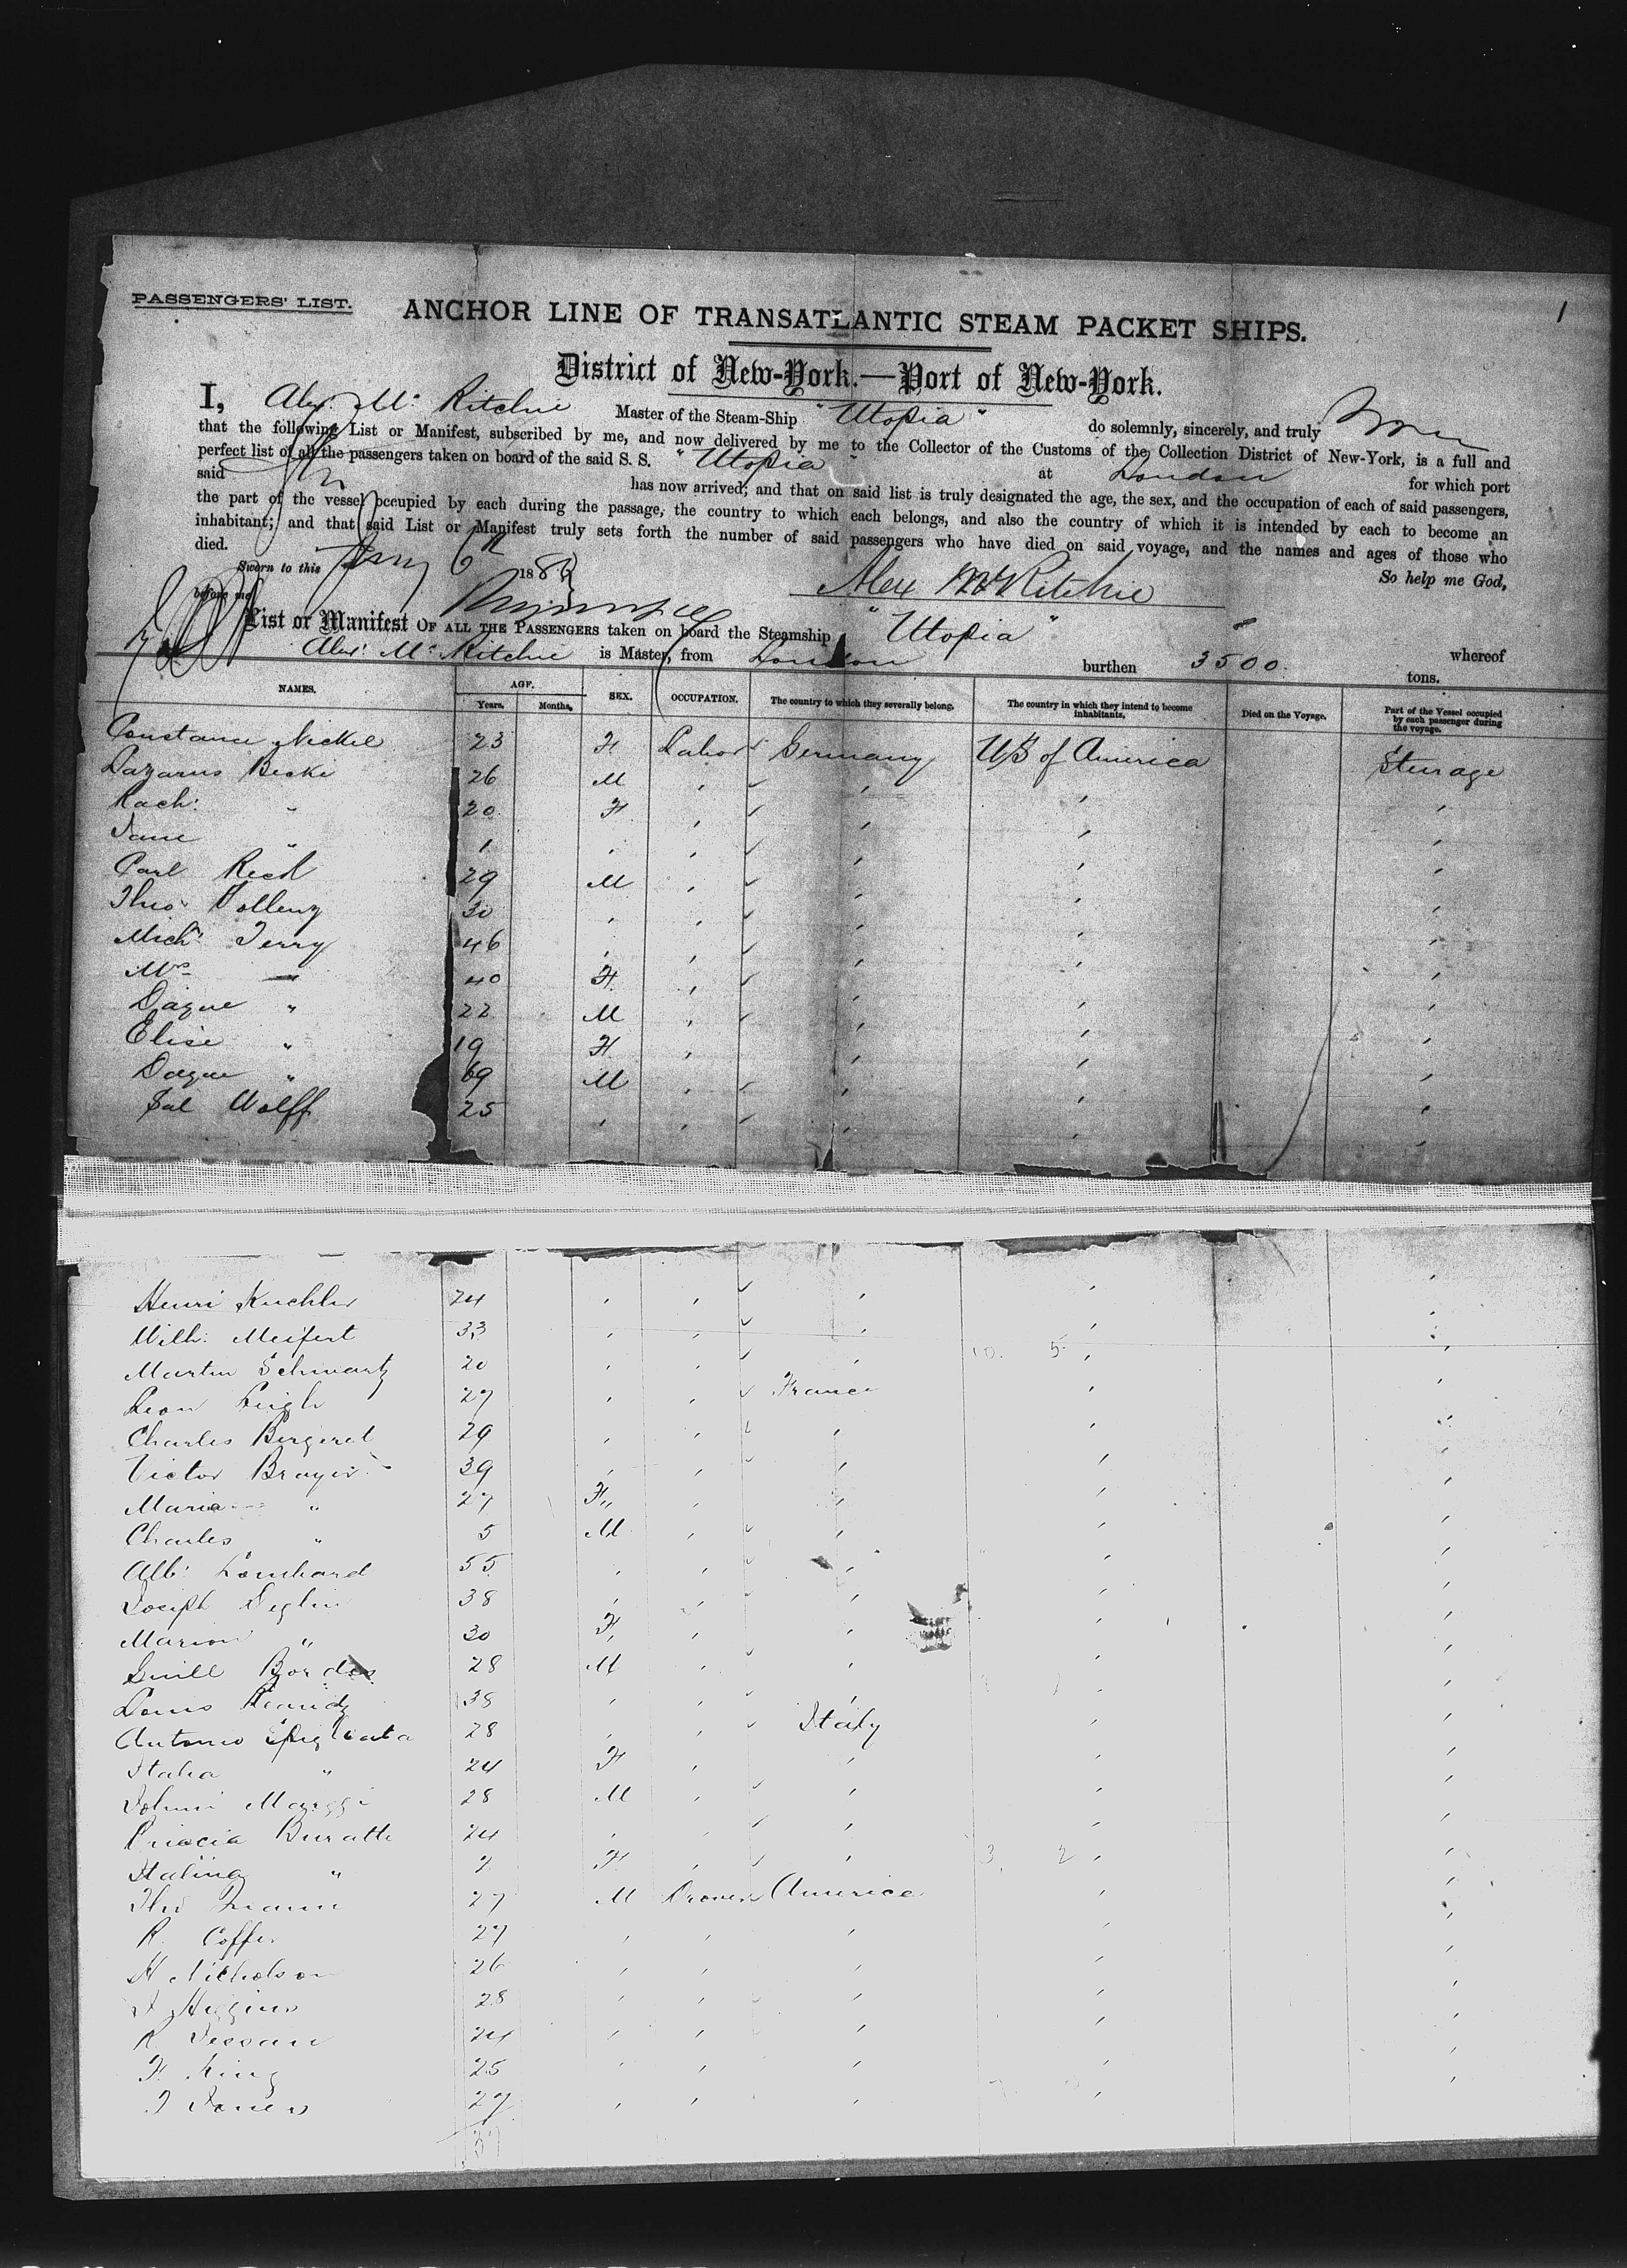 PASSENGERS' LIST.
1
ANCHOR LINE OF TRANSATLANTIC STEAM PACKET SHIPS.
District of New-York.—Port of New-York.
I, Alex. Mc Ritchie Master of the Steam-Ship "Utopia" do solemnly, sincerely, and truly
that the following List or Manifest, subscribed by me, and now delivered by me to the Collector of the Customs of the Collection District of New-York, is a full and
perfect list of all the passengers taken on board of the said S. S. "Utopia" at London for which port
said has now arrived; and that on said list is truly designated the age, the sex, and the occupation of each of said passengers,
the part of the vessel occupied by each during the passage, the country to which each belongs, and also the country of which it is intended by each to become an
inhabitant; and that said List or Manifest truly sets forth the number of said passengers who have died on said voyage, and the names and ages of those who
died. So help me God,
Sworn to this 6th 188
before me Alex McRitchie
List or Manifest OF ALL THE PASSENGERS taken on board the Steamship "Utopia" whereof
Alex. Mc Ritchie is Master, from London burthen 3500. tons.
NAMES. AGE. Years. Months. SEX. OCCUPATION. The country to which they severally belong. The country in which they intend to become inhabitants. Died on the Voyage. Part of the Vessel occupied by each passenger during the voyage.
Constance Nickel 23 F Labor Germany US of America Steerage
Lazarus Beske 26 M
Rach: " 20 F
Jane " 1
Carl 29 M
Theo. 30
Mich. Jerry 46
Mrs 40 F
" 22 M
Elise " 19 F
" 69 M
Sal Wolff 25
Henri Kuchler 24
Wilh: Meifert 33
Martin Schwartz 20
Leon Leigh 27 France
Charles Bergeret 29
Victor Brayer 39
Maria " 27 F
Charles " 5 M
Alb: 55
Joseph Deglin 38
Marion " 30 F
Guill Bordes 28 M
Louis 38
Antonio 28 Italy
Italia " 24 F
Maggi 28 M
Buratti 24
Italina " 2 F
Theo 27 M Drover America
R. Coffer 27
H Nicholson 26
J Higgins 28
R 24
F. King 25
J Jones 27
37